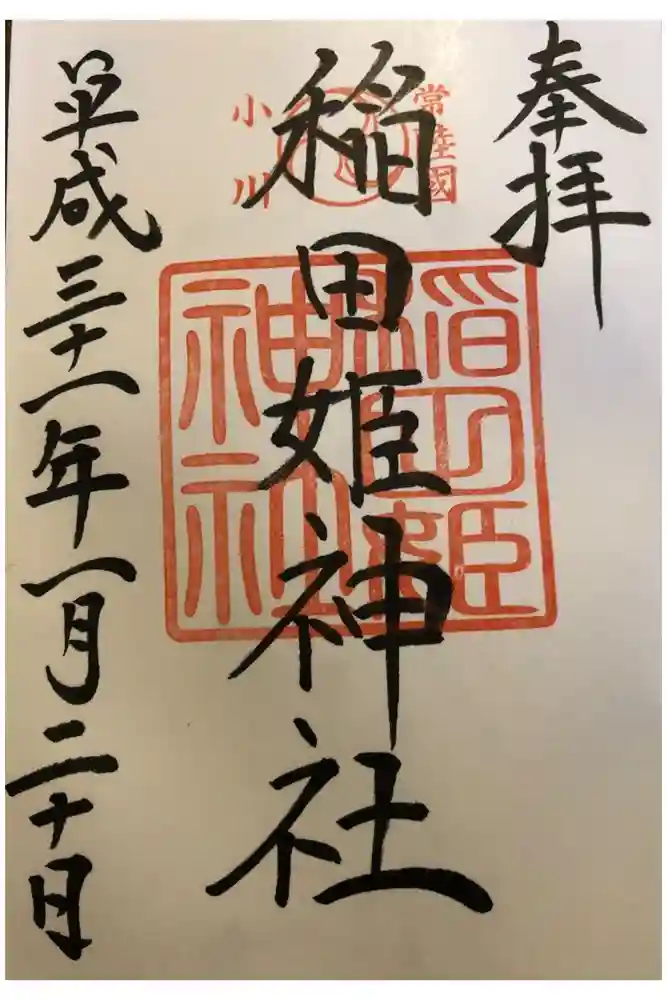 奉拝
常陸國
小川
稲田姫神社
稲田姫
神社
平成三十一年一月二十日